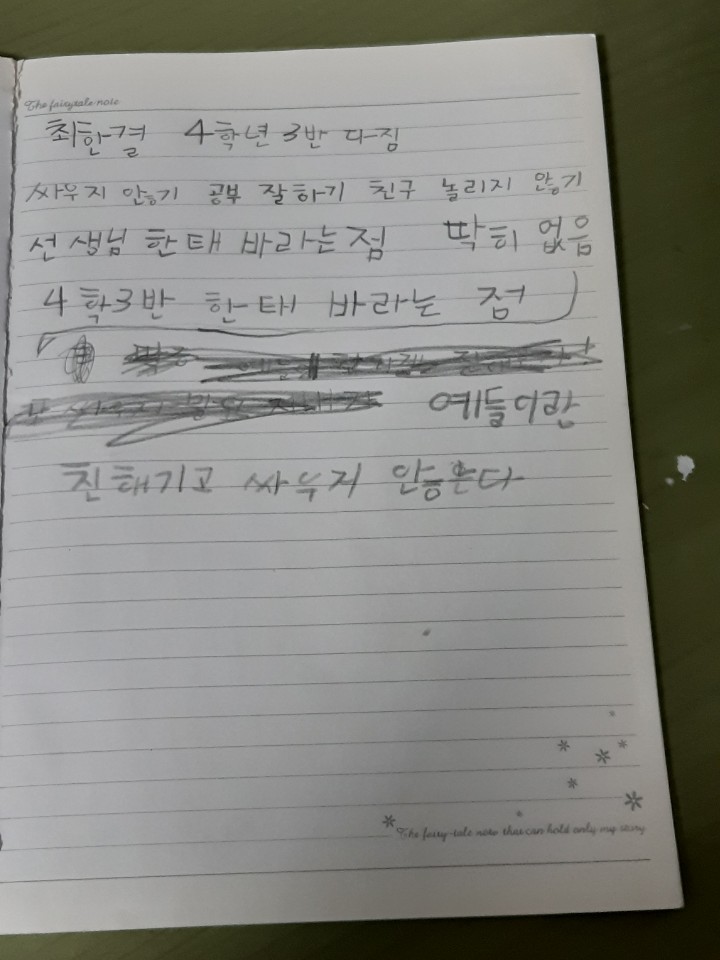 The fairytale note
최한결 4학년 3반 다짐
싸우지 안능기 공부 잘하기 친구 놀리지 안능기
선생님 한태 바라는점 딱히 없음
4학3반 한태 바라는 점
예들이란
친해기고 싸우지 안능은다
The fairy-tale note that can hold only my story